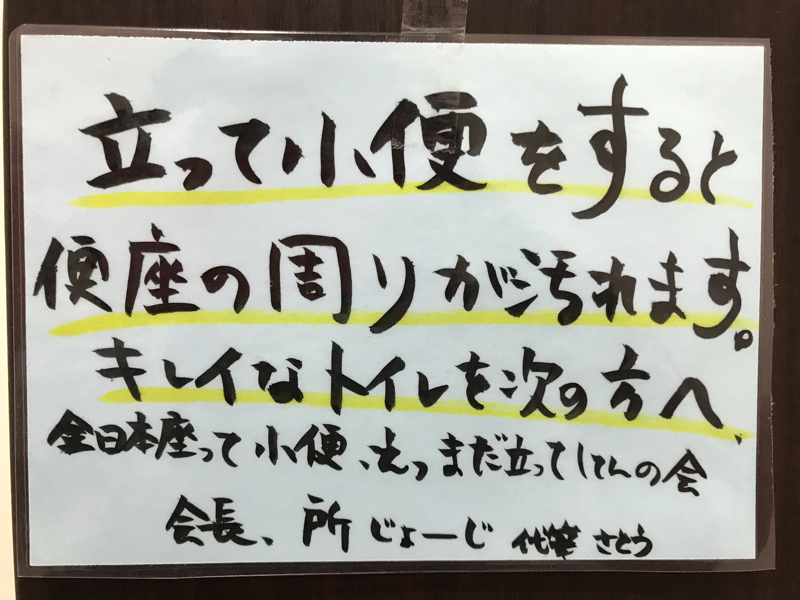 立って小便をすると
便座の周りが汚れます。
キレイなトイレを次の方へ、
全日本座って小便、えっまだ立ってしてんの会
会長、所じょーじ 代筆 さとう